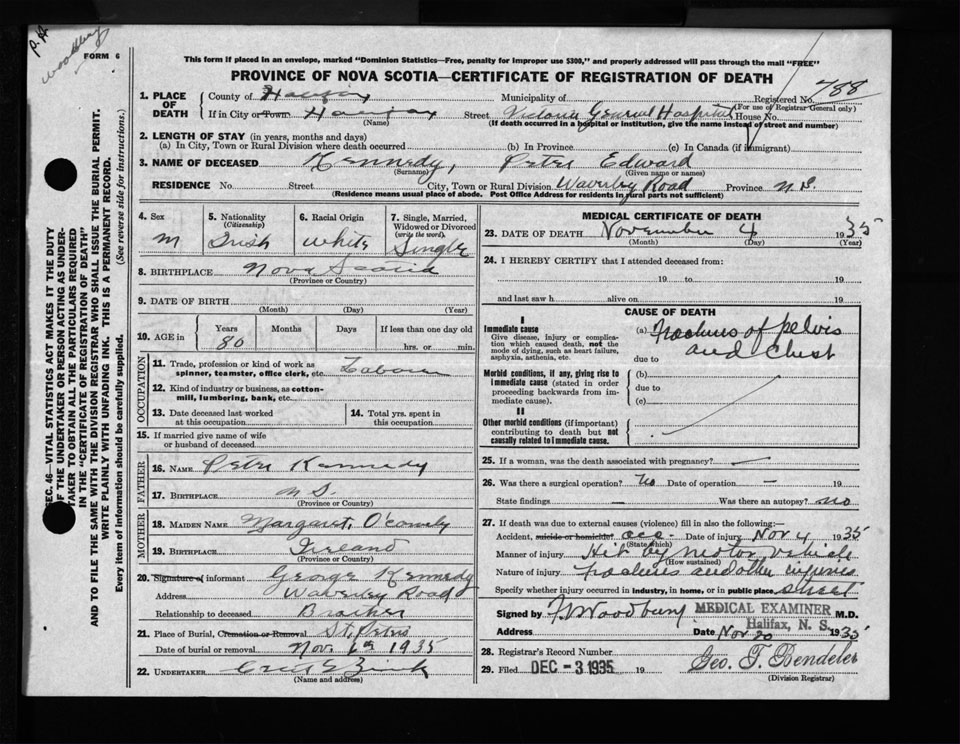 P. H.
Woodbury
FORM 6
This form if placed in an envelope, marked "Dominion Statistics—Free, penalty for improper use $300," and properly addressed will pass through the mail "FREE"
PROVINCE OF NOVA SCOTIA—CERTIFICATE OF REGISTRATION OF DEATH
Registered No. 788
(For use of Registrar General only)
1. PLACE OF DEATH
County of Halifax Municipality of
If in City or Town Halifax Street Victoria General Hospital House No.
(Name) (If death occurred in a hospital or institution, give the name instead of street and number)
2. LENGTH OF STAY (in years, months and days)
(a) In City, Town or Rural Division where death occurred (b) In Province (c) In Canada (if immigrant)
3. NAME OF DECEASED Kennedy, Peter Edward
(Surname) (Given name or names)
RESIDENCE No. Street City, Town or Rural Division Waverley Road Province N.S.
(Residence means usual place of abode. Post Office Address for residents in rural parts not sufficient)
4. Sex M
5. Nationality (Citizenship) Irish
6. Racial Origin White
7. Single, Married, Widowed or Divorced (write the word) Single
8. BIRTHPLACE Nova Scotia
(Province or Country)
9. DATE OF BIRTH
(Month) (Day) (Year)
10. AGE in Years 80 Months Days If less than one day old hrs. or min.
OCCUPATION
11. Trade, profession or kind of work as spinner, teamster, office clerk, etc. Labourer
12. Kind of industry or business, as cotton-mill, lumbering, bank, etc.
13. Date deceased last worked at this occupation
14. Total yrs. spent in this occupation
15. If married give name of wife or husband of deceased
FATHER
16. NAME Peter Kennedy
17. BIRTHPLACE N S.
(Province or Country)
MOTHER
18. MAIDEN NAME Margaret,
19. BIRTHPLACE Ireland
(Province or Country)
20. Signature of informant George Kennedy
Address Waverley Road
Relationship to deceased Brother
21. Place of Burial, Cremation or Removal St. Peters
Date of burial or removal Nov. 6th 1935
22. UNDERTAKER Cecil E Zink
(Name and address)
MEDICAL CERTIFICATE OF DEATH
23. DATE OF DEATH November 4 1935
(Month) (Day) (Year)
24. I HEREBY CERTIFY that I attended deceased from:
19 to 19
and last saw h alive on 19
CAUSE OF DEATH
I
Immediate cause
Give disease, injury or complication which caused death, not the mode of dying, such as heart failure, asphyxia, asthenia, etc.
(a) Fractures of pelvis
due to and chest
Morbid conditions, if any, giving rise to immediate cause (stated in order proceeding backwards from immediate cause).
(b)
due to
(c)
II
Other morbid conditions (if important) contributing to death but not causally related to immediate cause.
25. If a woman, was the death associated with pregnancy? —
26. Was there a surgical operation? No Date of operation —
State findings — Was there an autopsy? no
27. If death was due to external causes (violence) fill in also the following:—
Accident, suicide or homicide? acc- Date of injury Nov 4 1935
(State which)
Manner of injury Hit by motor vehicle
(How sustained)
Nature of injury Fractures and other injuries
Specify whether injury occurred in industry, in home, or in public place. Street
Signed by F. Woodbury MEDICAL EXAMINER M.D.
Halifax, N. S.
Address Date Nov 20 1935
28. Registrar's Record Number
29. Filed DEC - 3 1935 19 Geo. F. Bendeler
(Division Registrar)
SEC. 46—VITAL STATISTICS ACT MAKES IT THE DUTY
OF THE UNDERTAKER OR PERSON ACTING AS UNDER-
TAKER TO OBTAIN ALL THE PARTICULARS REQUIRED
IN THE "CERTIFICATE OF REGISTRATION OF DEATH"
AND TO FILE THE SAME WITH THE DIVISION REGISTRAR WHO SHALL ISSUE THE BURIAL PERMIT.
WRITE PLAINLY WITH UNFADING INK. THIS IS A PERMANENT RECORD.
Every item of information should be carefully supplied. (See reverse side for instructions.)